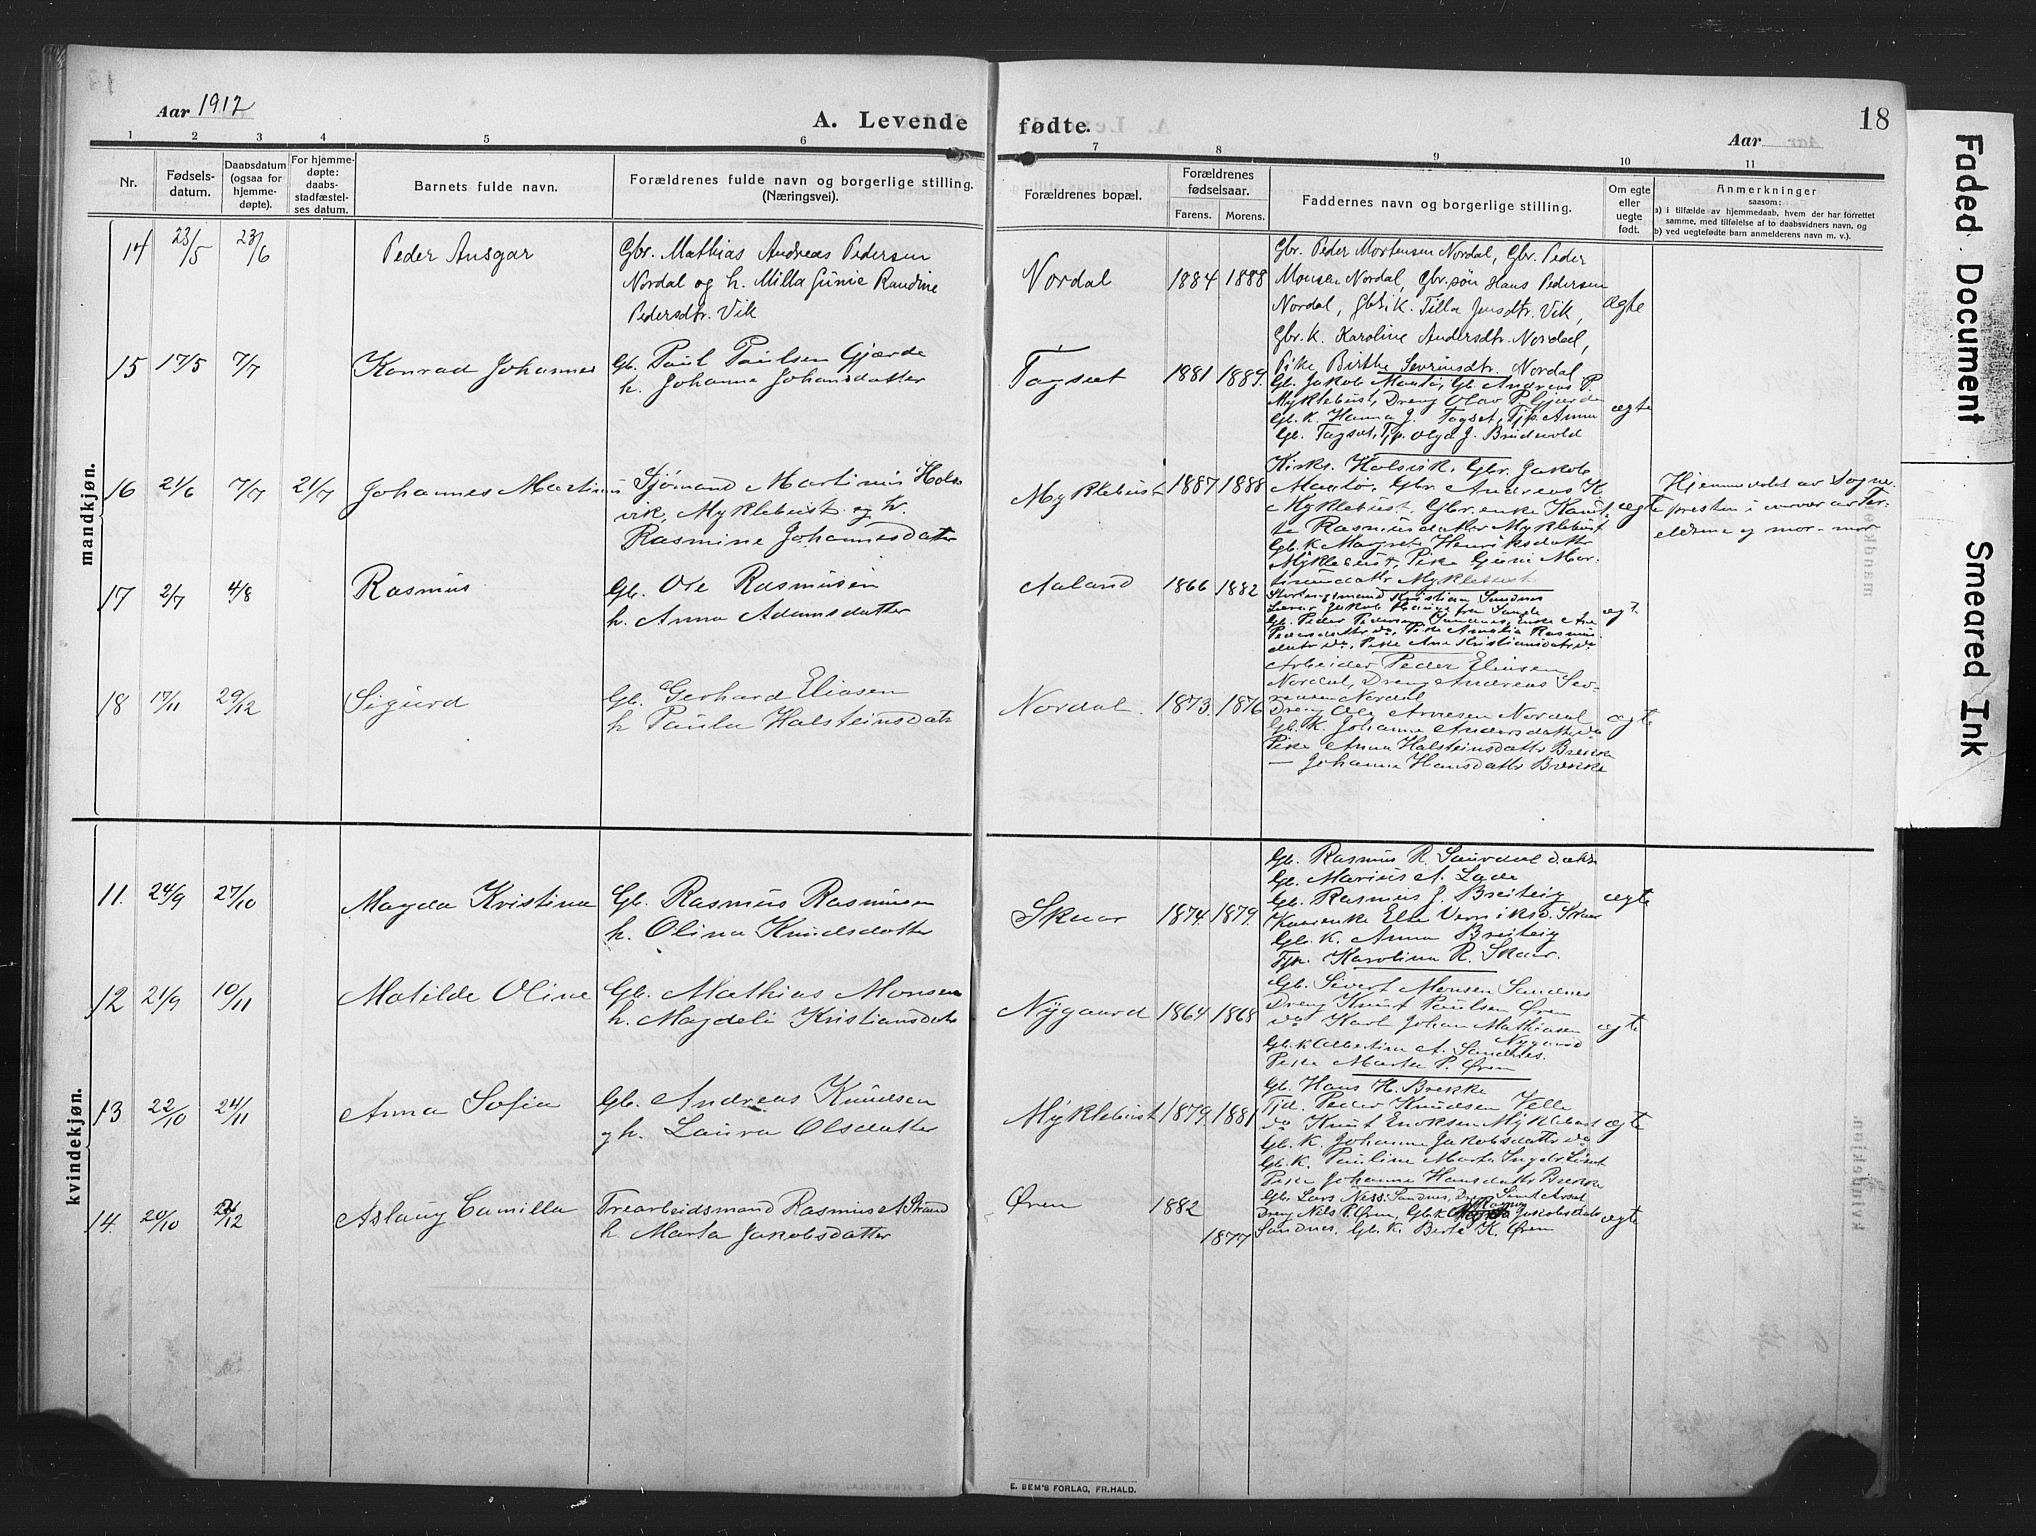 Aar 1912
A. Levende fødte.
Aar
18
1 2 3 4 5 6 7 8 9 10 11
Nr.
Fødsels-
datum.
Daabsdatum
(ogsaa for
hjemme-
døpte).
For hjemme-
døpte:
daabs-
stadfæstel-
ses datum.
Barnets fulde navn.
Forældrenes fulde navn og borgerlige stilling.
(Næringsvei).
Forældrenes bopæl.
Forældrenes
fødselsaar.
Farens. Morens.
Faddernes navn og borgerlige stilling.
Om egte
eller
uegte
født.
Anmerkninger
saasom:
a) i tilfælde av hjemmedaab, hvem der har forrettet
samme, med tilføielse af to daabsvidners navn, og
b) ved uegtefødte barn anmelderens navn m. v.).
mandkjøn.
14 23/5 23/6 Peder Ansgar
Gbr. Mathias Andreas Pedersen
Nordal og h. Milla Gunie Randine
Pedersdtr. Vik
Nordal 1884 1888
Gbr. Peder Mortensen Nordal, Gbr. Peder
Monsen Nordal, Gbr.søn Hans Pedersen
Nordal, Gbr.k. Tilla Jensdtr. Vik,
Gbr. K. Karoline Andersdtr. Nordal,
Pike Birthe Severinsdtr. Nordal
ægte
15 17/5 7/7 Konrad Johannes
Gb. Paul Paulsen Gjærde
h. Johanne Johansdatter
Tagset 1881 1889.
Gb. Jakob Maatø, Gb. Andreas P.
Myklebust, Dreng Olav P. Gjærde
Gb. K. Hanna J. Tagset, Tjp. Anna
Gb. Tagset, Tjp. Olga J. Brudevold
ægte
16 21/6 7/7 21/7 Johannes Martinus
Sjømand Martinus Hols
vik, Myklebust og h.
Rasmine Johannesdatter
Myklebust 1887 1888
Kirks. Holsvik, Gbr. Jakob
Maatø, Gbr. Andreas K.
Myklebust, Gbr. enke Knut-
te Rasmusdatter Myklebust
Gb. K. Margrete Henriksdatter
Myklebust, Pike Gunie Mar-
tinusdattr Myklebust
ægte
Hjemmedøbt av Sogne-
presten i nærvær av for-
ældrene og mor-mor
17 2/7 4/8 Rasmus
Gb. Ole Rasmusen
h. Anna Adamsdatter
Aaland 1866 1882
Stortingsmand Kristian Sandnes
Lærer Jakob Hauge fra Sande
Gb. Peder Pedersen Sandnes, Enke Ane
Pedersdattr do, Pike Amalia Rasmus-
datr do, Pike Ane Kristiansdatr do
ægt.
18 17/11 29/12 Sigurd
Gb. Gerhard Eliasen
h Paula Halsteinsdatr
Nordal. 1873. 1876
Arbeider Peder Eliasen
Nordal, Dreng Andreas Sev-
rensen Nordal
Dreng Ole Arnesen Nordal
Gb. K. Johanne Andersdatter do
Pike Anna Halsteinsdattr Brekke
— Johanne Hansdattr Brekke
ægte
kvindekjøn.
11. 24/9 27/10 Magda Kristine
Gb. Rasmus Rasmusen
h. Olina Knudsdatter
Skaar 1874. 1879.
Gb. Rasmus R. Saurdal
Gb. Marius A. Lade
Gb. Rasmus J. Breiteig
Kaarenke Else Skaar
Gb. K. Anna Breiteig
Tjp. Karolina R. Skaar.
ægte
12 21/9 10/11 Matilde Oline
Gb. Mathias Monsen
h. Magdeli Kristiansdatr
Nygaard 1864 1868
Gb. Sivert Monsen Sandnes
Dreng Knut Paulsen Øren
do Karl Johan Mathiasen
Nygaard
Gb. K Albertine A. Sandnes.
Pike Marta P. Øren
ægte
13 22/10 24/11 Anna Sofia
Gb. Andreas Knudsen
og h. Laura Olsdatter
Myklebust 1879 1881
Gb. Hans H. Brekke
Tjd. Peder Knudsen Velle
do Knut Enoksen Myklebust
Gb. K. Johanne Jakobsdatter do
Gb. K. Pauline Marta
Pike Johanne Hansdattr Brekke
ægte
14. 20/10 /12 Aslaug Camilla
Trearbeidsmand Rasmus A Strand
h. Marta Jakobsdatter
Øren 1882
1877
Gb. Lars Sandnes, Dreng
Dreng Nils P. Øren, Gb. K. Jakobsdatr
Sandnes, Gb. K. Berte K. Øren
ægte
E. SEM'S FORLAG, FR.HALD.
Faded Document
Smeared Ink